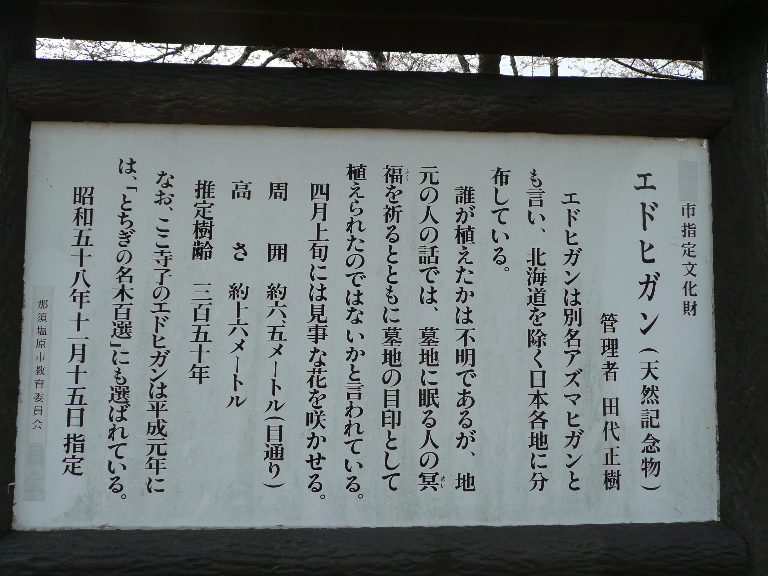 市指定文化財
エドヒガン(天然記念物)
管理者 田代正樹
エドヒガンは別名アズマヒガンと
も言い、北海道を除く日本各地に分
布している。
誰が植えたかは不明であるが、地
元の人の話では、墓地に眠る人の冥
福を祈るとともに墓地の目印として
植えられたのではないかと言われている。
四月上旬には見事な花を咲かせる。
周囲 約六.五メートル(目通り)
高さ 約十六メートル
推定樹齢 三百五十年
なお、ここ寺子のエドヒガンは平成元年に
は、「とちぎの名木百選」にも選ばれている。
昭和五十八年十一月十五日 指定
那須塩原市教育委員会